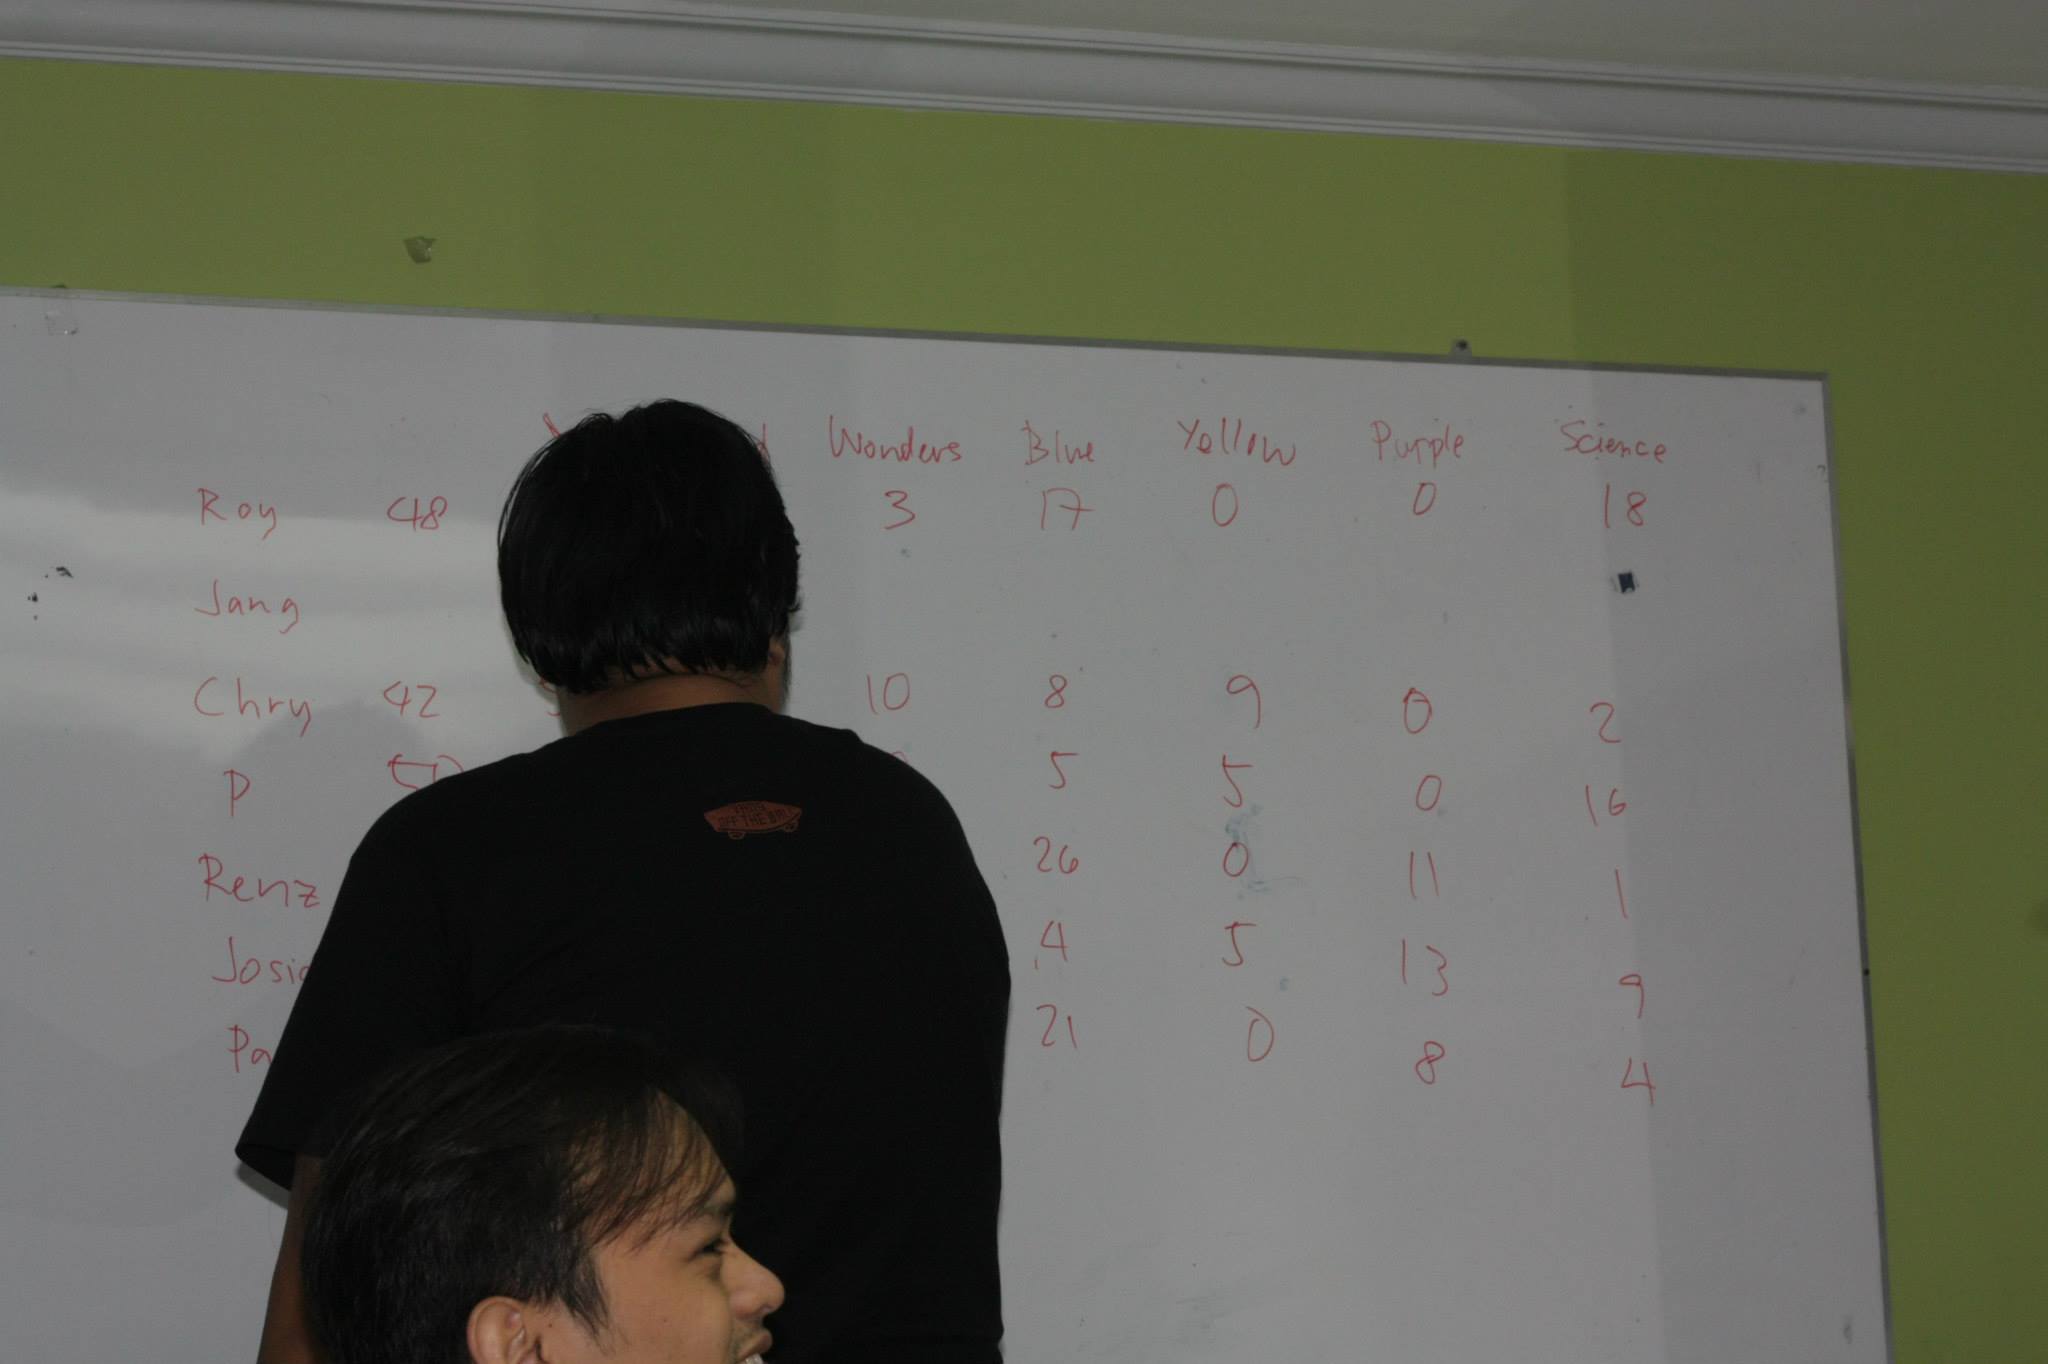 Wonders Blue Yellow Purple Science
Roy 48 3 17 0 0 18
Jang
Chry 42 10 8 9 0 2
P 5 5 0 16
Renz 26 0 11 1
4 5 13 9
21 0 8 4
OFF THE WALL